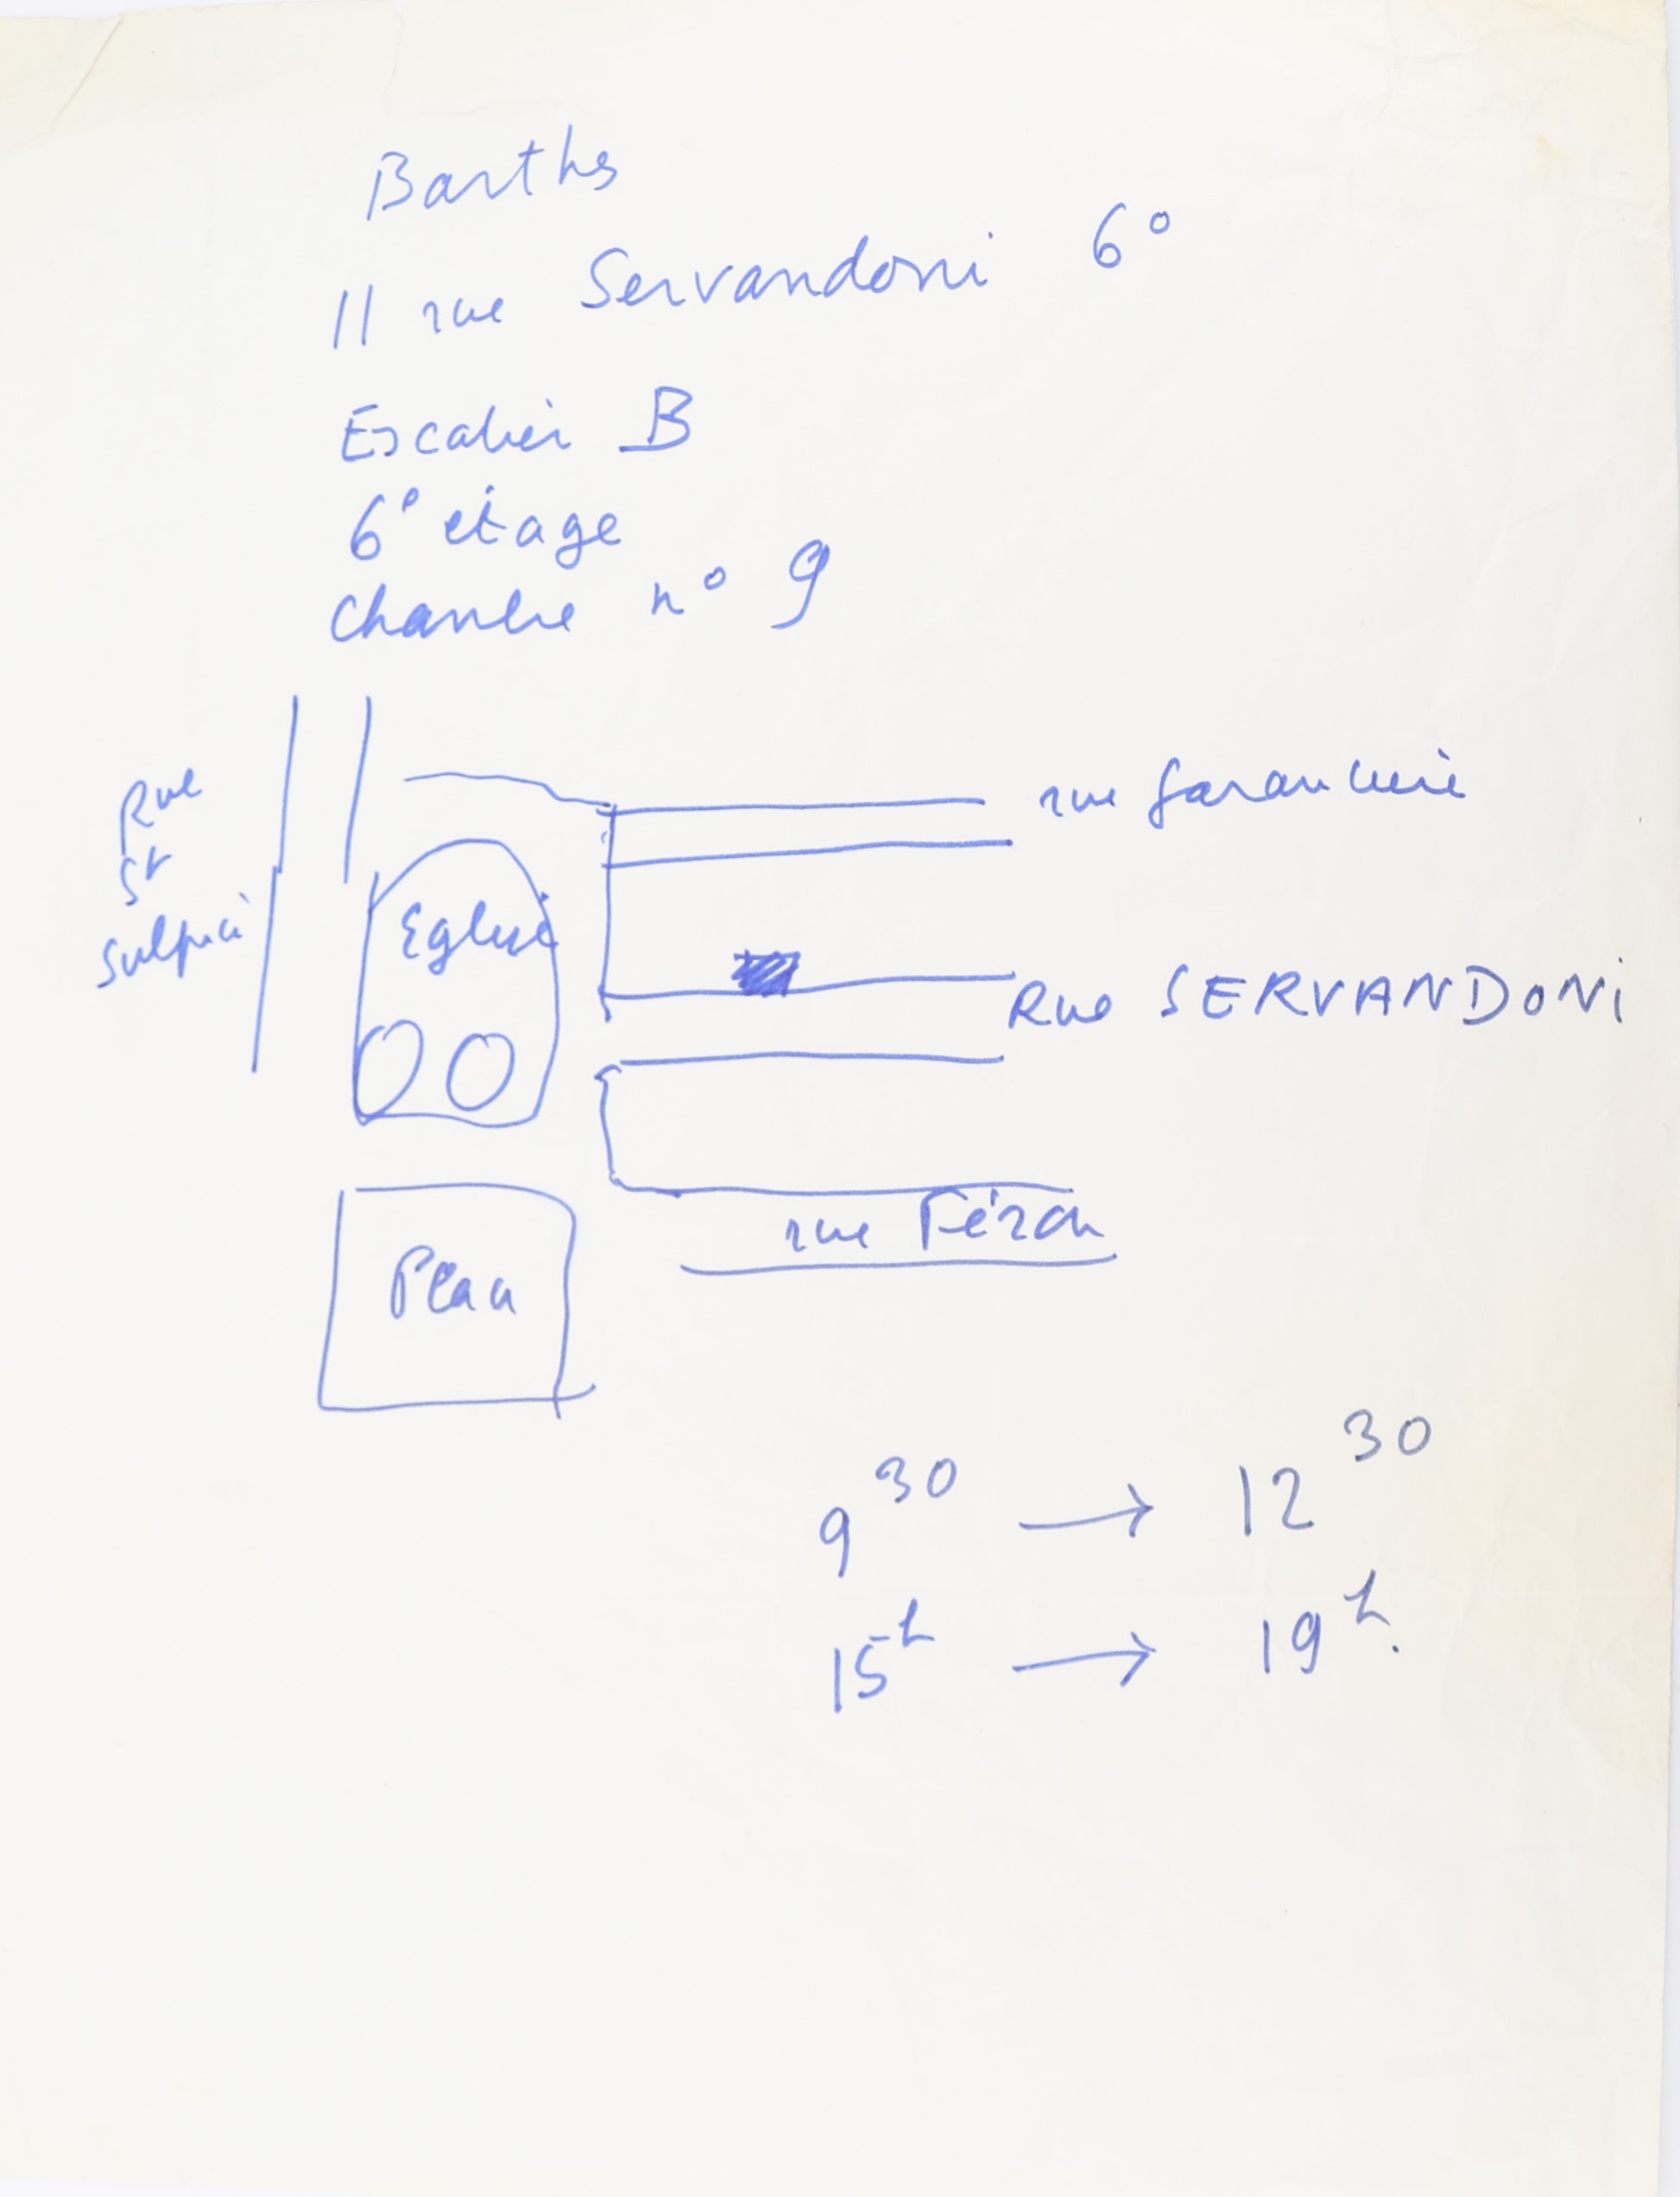 Barthes
11 rue Servandoni 6°
Escalier B
6° etage
Chambre n° 9
rue Garancière
Rue
St
Sulpice
Eglise
Rue SERVANDONI
rue Férou
Place
9 30 → 12 30
15h → 19h.